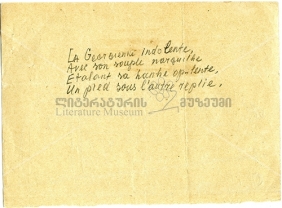 La Georgienne indolente,
Avec son souple narguilhe
Etalant sa hanche opulente,
Un pied sous l'autre replie.
ლიტერატურის მუზეუმი
Literature Museum